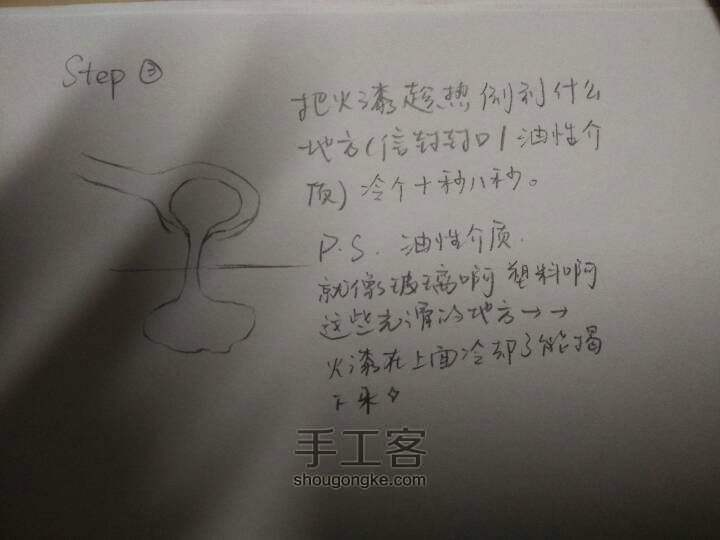 Step ③
把火漆趁热倒到什么
地方(信封封口/油性介
质)冷个十秒八秒。
P.S. 油性介质.
就像玻璃啊 塑料啊
这些光滑的地方→→
火漆在上面冷却了能揭
下来
手工客
shougongke.com